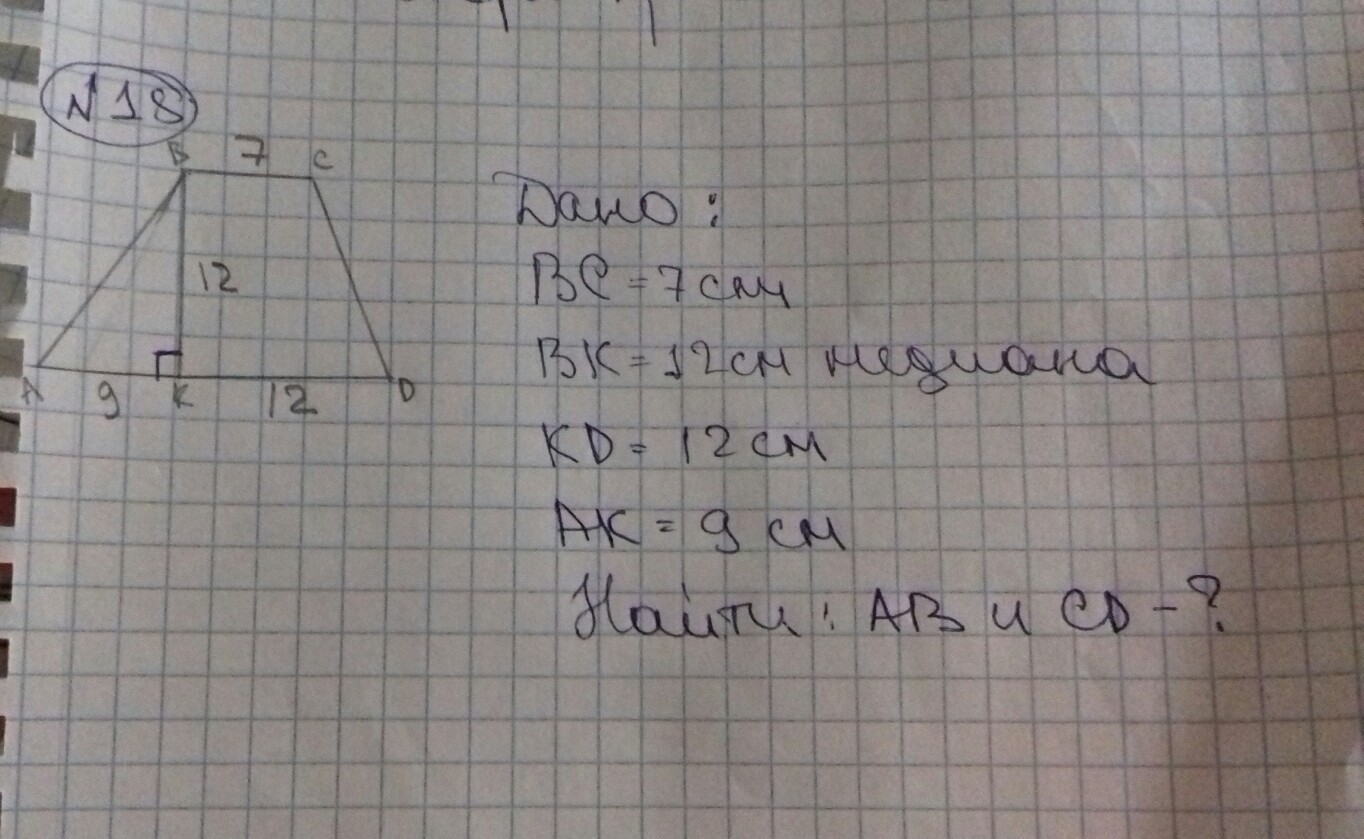 N18
B 7 C
12
A 9 K 12 D
Дано:
BC = 7 см
BK = 12 см медиана
KD = 12 см
AK = 9 см
Найти: AB и CD - ?